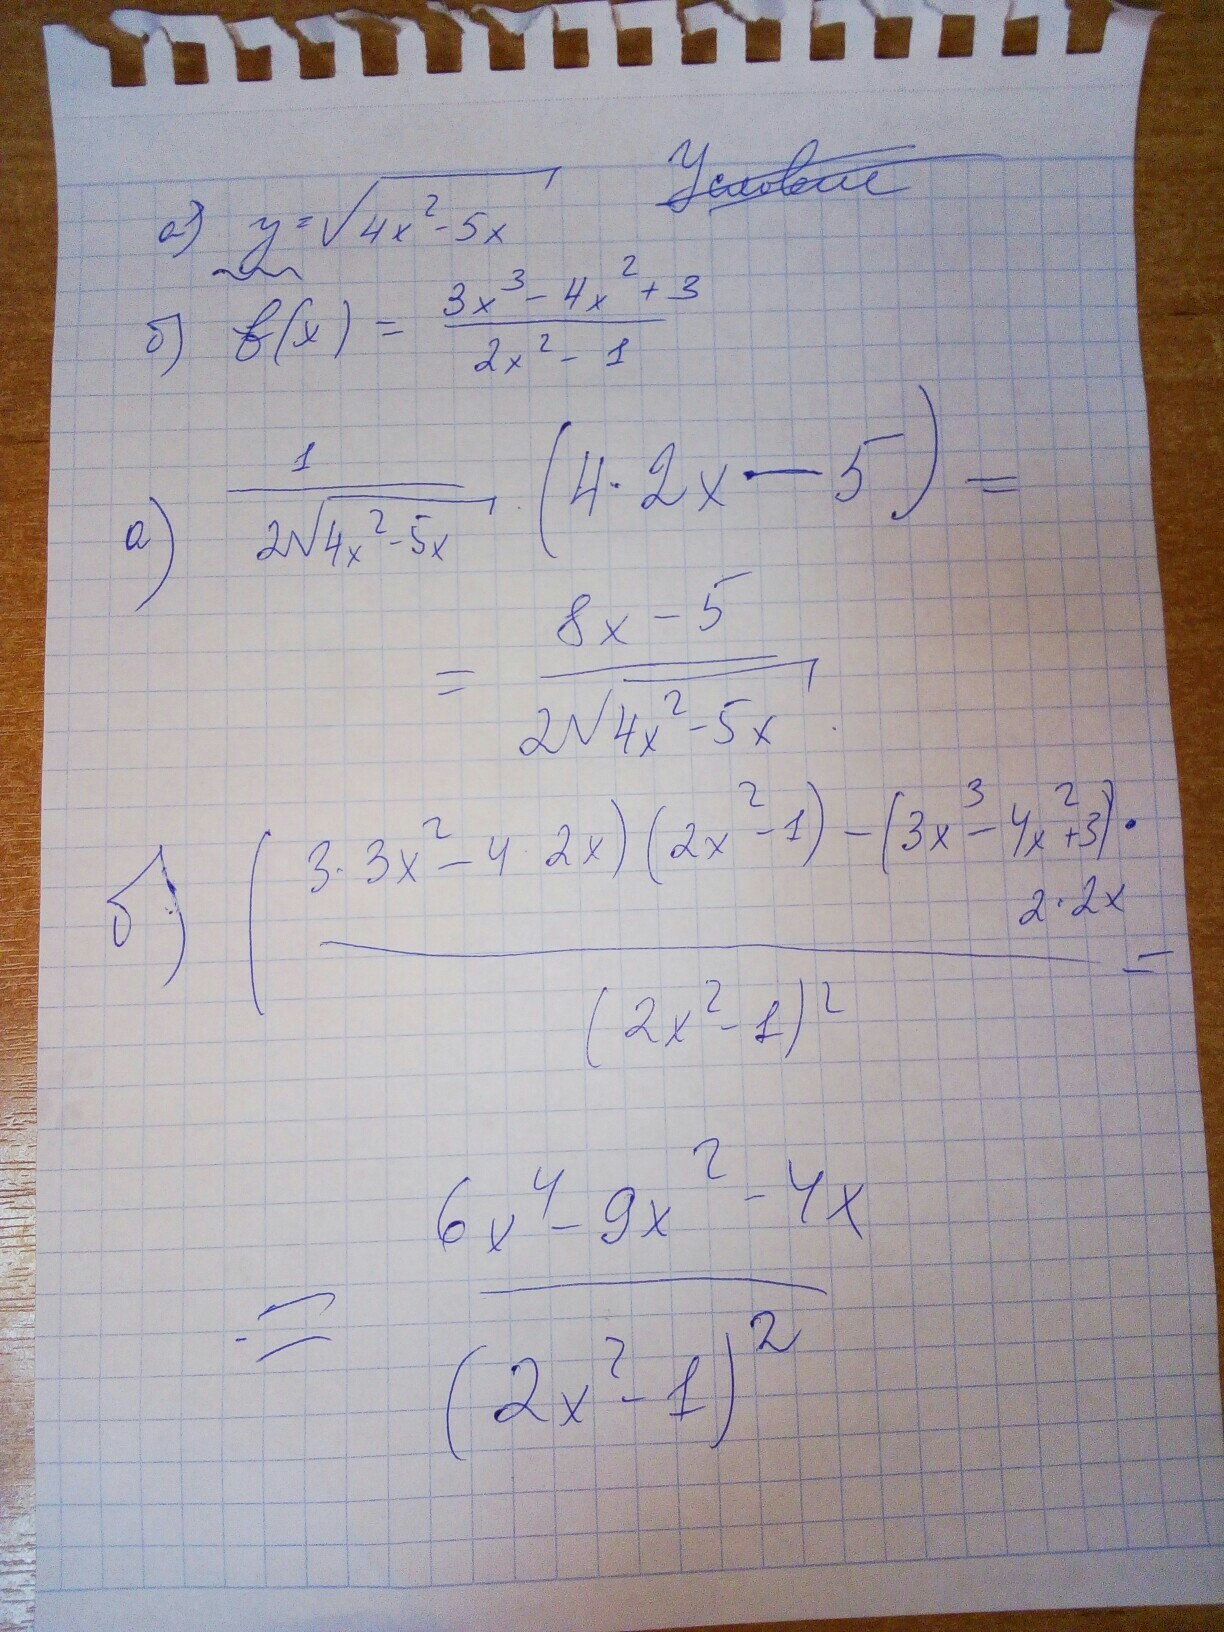 Условие
а) y = √(4x² - 5x)
б) f(x) = (3x³ - 4x² + 3) / (2x² - 1)
а) 1 / (2√(4x² - 5x)) · (4 · 2x - 5) =
= (8x - 5) / (2√(4x² - 5x)).
б) ((3 · 3x² - 4 · 2x)(2x² - 1) - (3x³ - 4x² + 3) · 2 · 2x) / (2x² - 1)² =
= (6x⁴ - 9x² - 4x) / (2x² - 1)²